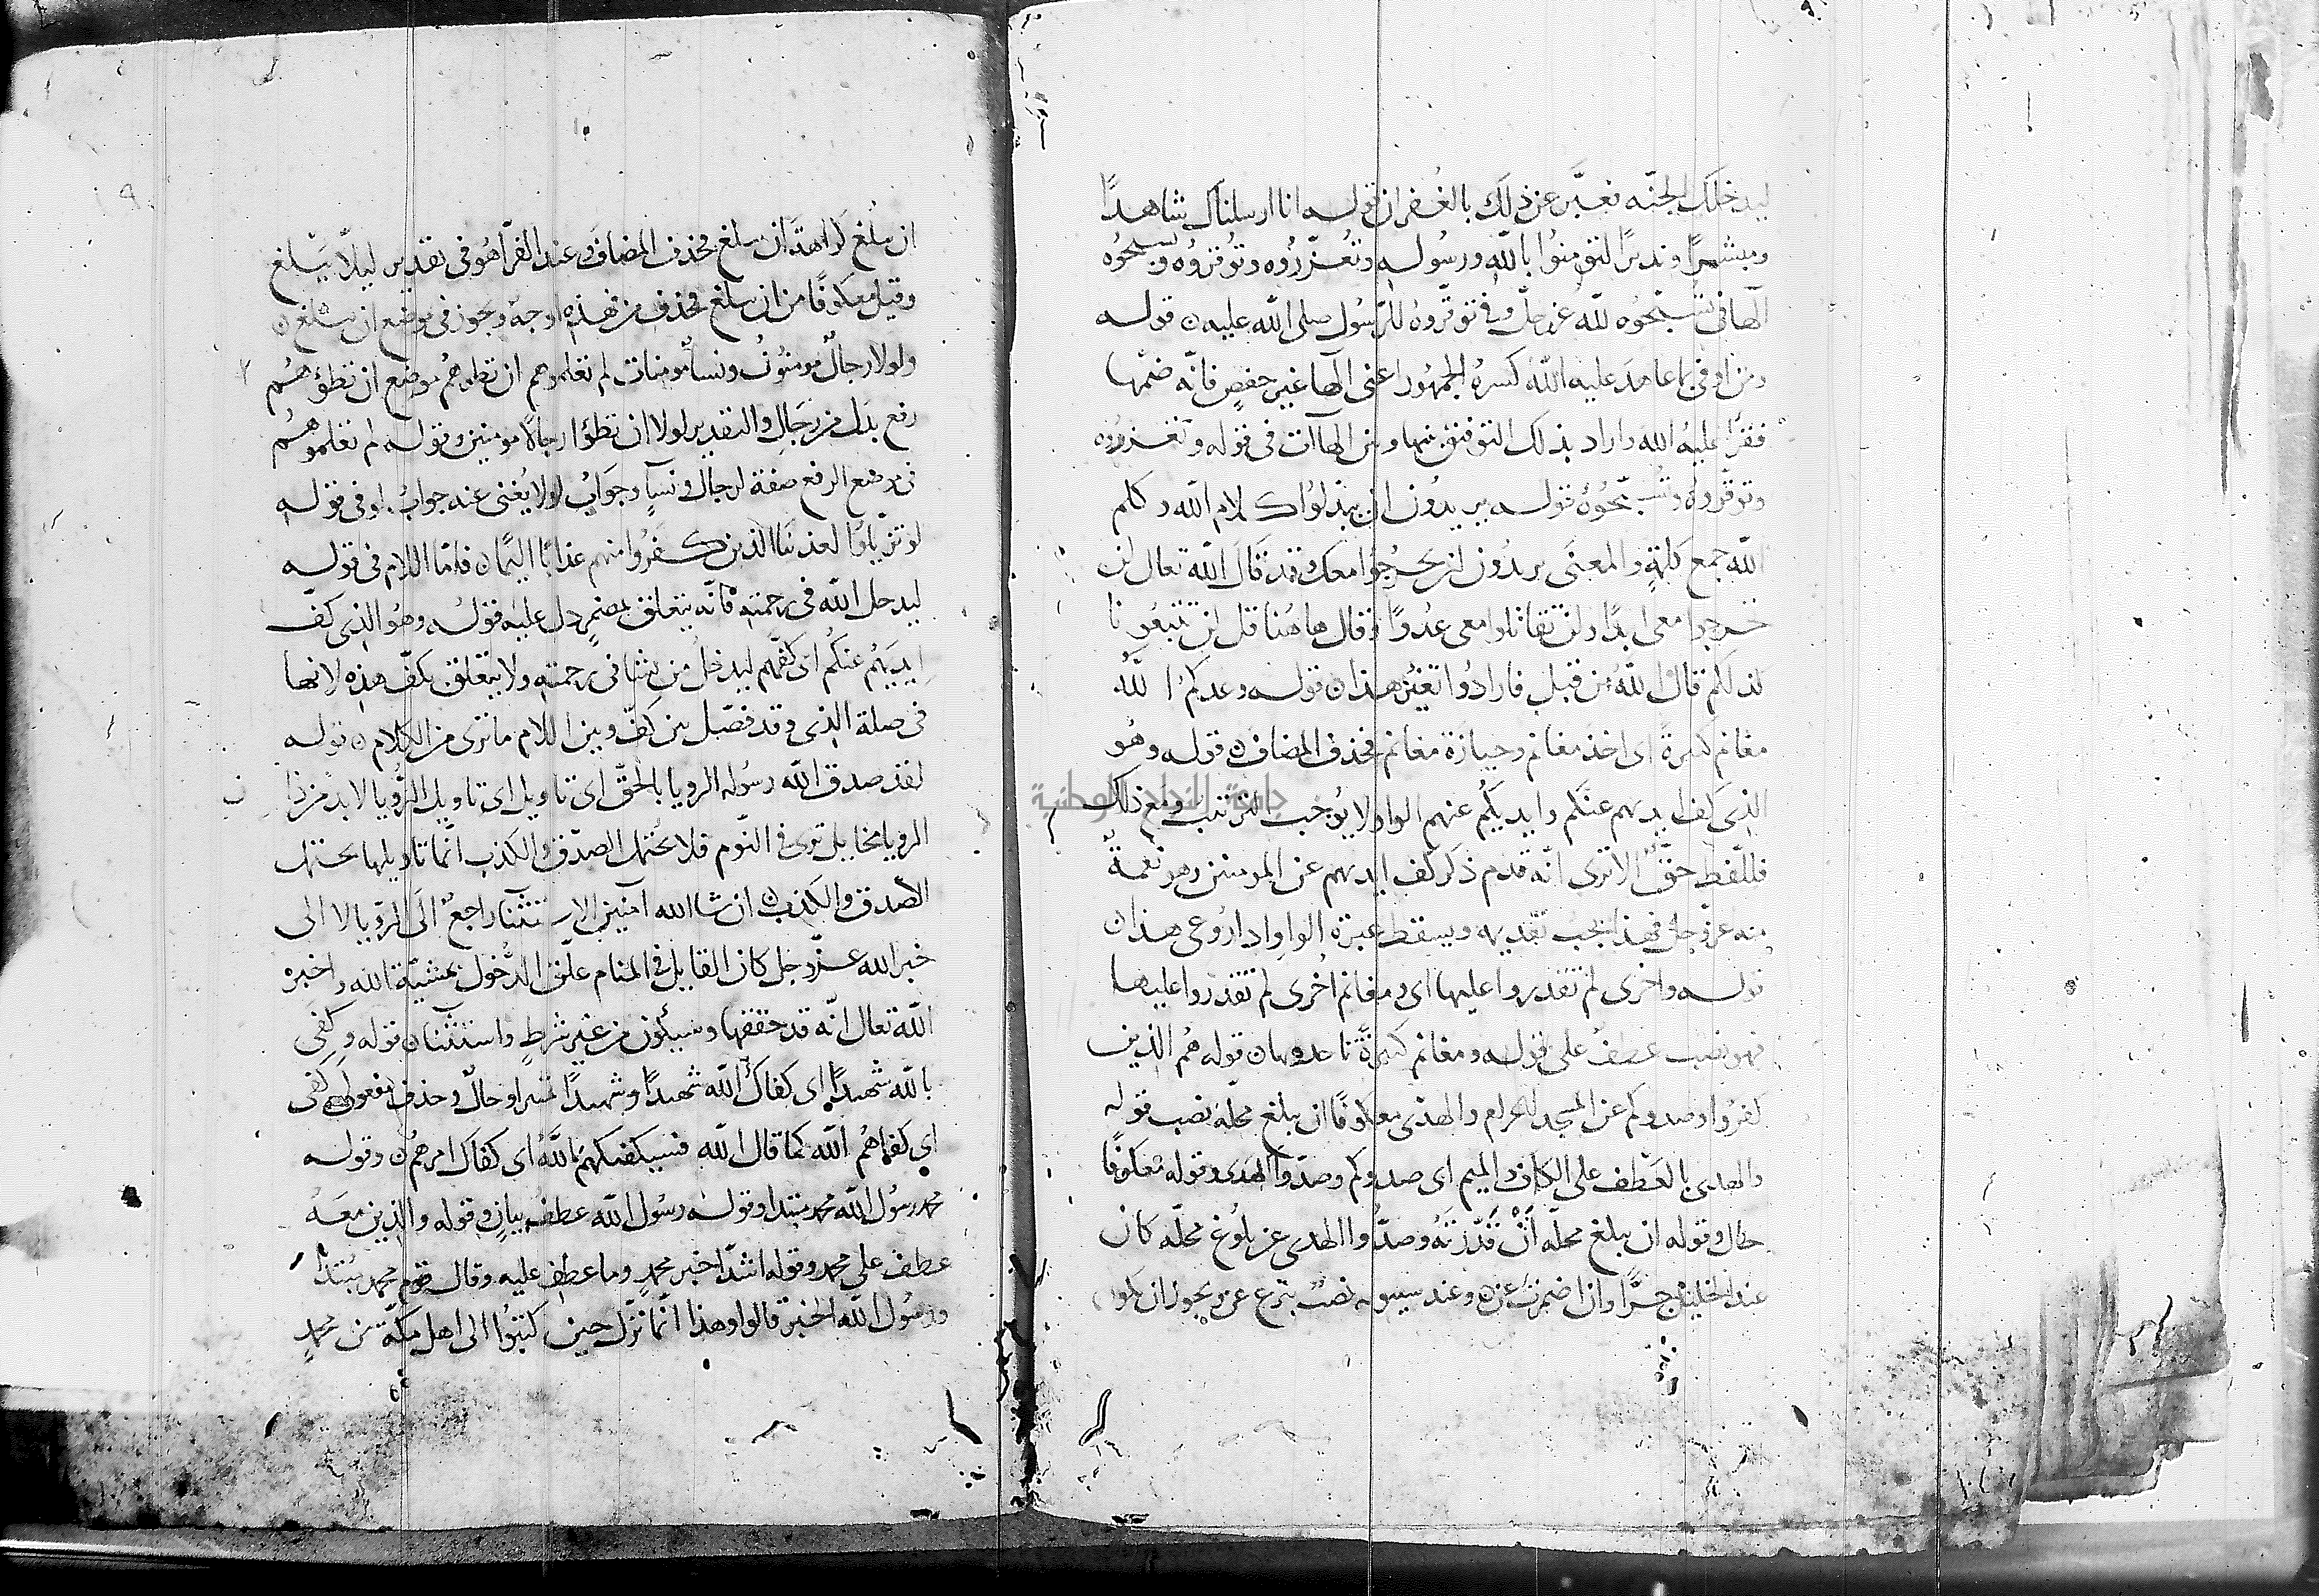 ليدخلك الجنة فعبّر عن ذلك بالغفران قوله انا ارسلناك شاهدًا
ومبشرًا ونذيرًا لتؤمنوا بالله ورسوله وتعزّروه وتوقروه وتسبحوه
الهاء في تسبّحوه لله عز وجل وفي توقّروه للرّسول صلى الله عليه قوله
ومن اوفى بما عاهد عليه الله كسره الجمهور اعني الها غير حفص فانّه ضمّها
فقرأ عليهُ الله واراد بذلك التوفيق بينها وبين الهاآت في قوله وتعزروه
وتوقروه وتسبّحوه قوله يريدون ان يبدلوا كلام الله وكلم
الله جمع كلمةٍ والمعنى يريدون ان يخرجوا معك وقد قال الله تعالى لن
تخرجوا معي ابدًا ولن تقاتلوا معي عدوًا وقال هاهنا قل لن تتبعونا
كذلكم قال الله من قبل فارادوا تغيير هذا قوله وعدكم الله
مغانم كثيرة اى اخذ مغانم وحيازة مغانم فحذف المضاف قوله وهو
الذي كف ايديهم عنكم وايديكم عنهم الواو لا يوجب الترتيب ومع ذلك
فللّفظ حقٌّ الا ترى انّه قدم ذكر كف ايديهم عن المومنين وهو نعمةٌ
منه عز وجل فهذا يجب تقديمه ويسقط عبرة الواو اذا روعي هذا
قوله واخرى لم تقدروا عليها اى ومغانم اخرى لم تقدروا عليها
فهو نصب عطفٌ على قوله ومغانم كثيرةً تاخذونها قوله هم الذين
كفروا وصدوكم عن المسجد الحرام والهدى معكوفًا ان يبلغ محله نصب قوله
والهدى بالعطف على الكاف والميم اى صدوكم وصدّوا الهدى وقوله معكوفًا
حال وقوله ان يبلغ محلّه انْ قدّرته وصدّوا الهدى عن بلوغ محلّه كان
عند الخليل جرًّا وان اضمرت عن وعند سيبويه نصبٌ بنزع عن ويجوز ان يكون
ان يبلغ كراهة ان يبلغ فحذف المضاف وعند الفرّاء هو في تقدير ليلّا يبلغ
وقيل معكوفًا من ان يبلغ فحذف من فهذه اوجهٌ ويجوز في موضع ان يبلغ
ولولا رجالٌ مومنونُ ونساءٌ مومنات لم تعلموهم ان تطوهم موضع ان تطؤهم
رفع بدل من رجالٍ والتقدير لولا ان تطؤا رجالًا مومنين وقوله لم تعلموهم
في موضع الرفع صفة لرجالٍ ونسآءٍ وجوابُ لولا يُغنى عنه جوابُ لو في قوله
لو تزيّلوا لعذبنا الذين كفروا منهم عذابًا اليمًا فامّا اللام في قوله
ليدخل الله في رحمته فانّه يتعلق بمضمرٍ دل عليه قوله وهو الذي كفّ
ايديَهُم عنكُم اى كفّهم ليدخل من يشا في رحمته ولا يتعلق بكفّ هذه لانها
في صلة الذي وقد فصّل بين كفّ وبين اللام ما ترى من الكلام قوله
لقد صدق الله رسوله الرويا بالحقّ اى تاويل اى تاويل الرُّويا لا بد من ذا
الرويا مخاييل ترى في النّوم فلا يحتمل الصدق والكذب انّما تاويلها يحتمل
الصدق والكذب ان شا الله آمنين الاستثنا راجعٌ الى الرّويا لا الى
خبر الله عزّ وجل كان القايل في المنام علّق الدُّخول بمشيّة الله واخبره
الله تعالى انّه قد حققها وسيكون من غير شرطٍ واستثنا قوله وكفى
بالله شهيدًا اى كفاك الله شهيدًا وشهيدًا تمييز او حالٌ وحذف مفعولى كفى
اى كفاهُم الله كما قال الله فسيكفيكهم اللهُ اى كفاك امرهم وقوله
محمد رسول الله محمد مبتدا وقوله رسُول الله عطف بيانٍ وقوله والذين معهُ
عطف على محمد وقوله اشدّا خبر محمدٍ وما عطف عليه وقال قوم محمد مبتدا
ورسُول الله الخبر قالوا وهذا انّما نزل حين كتبُوا الى اهل مكّة من محمدٍ